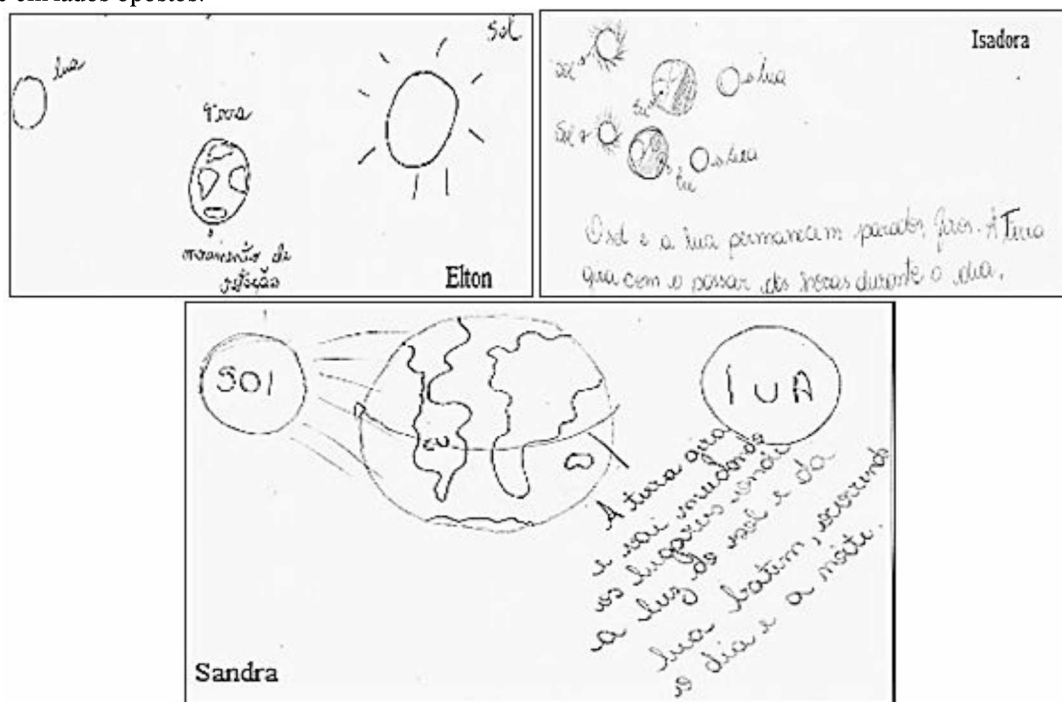 e em lados opostos.
lua
Terra
Sol
movimento de
rotação
Elton
Isadora
Sol
eu
a lua
Sol
eu
a lua
O sol e a lua permanecem parados, fixos. A Terra
gira com o passar das horas durante o dia.
SOl
EU
lUA
A terra gira
e vai mudando
os lugares onde
a luz do sol e da
lua batem, ocorrendo
o dia e a noite.
Sandra